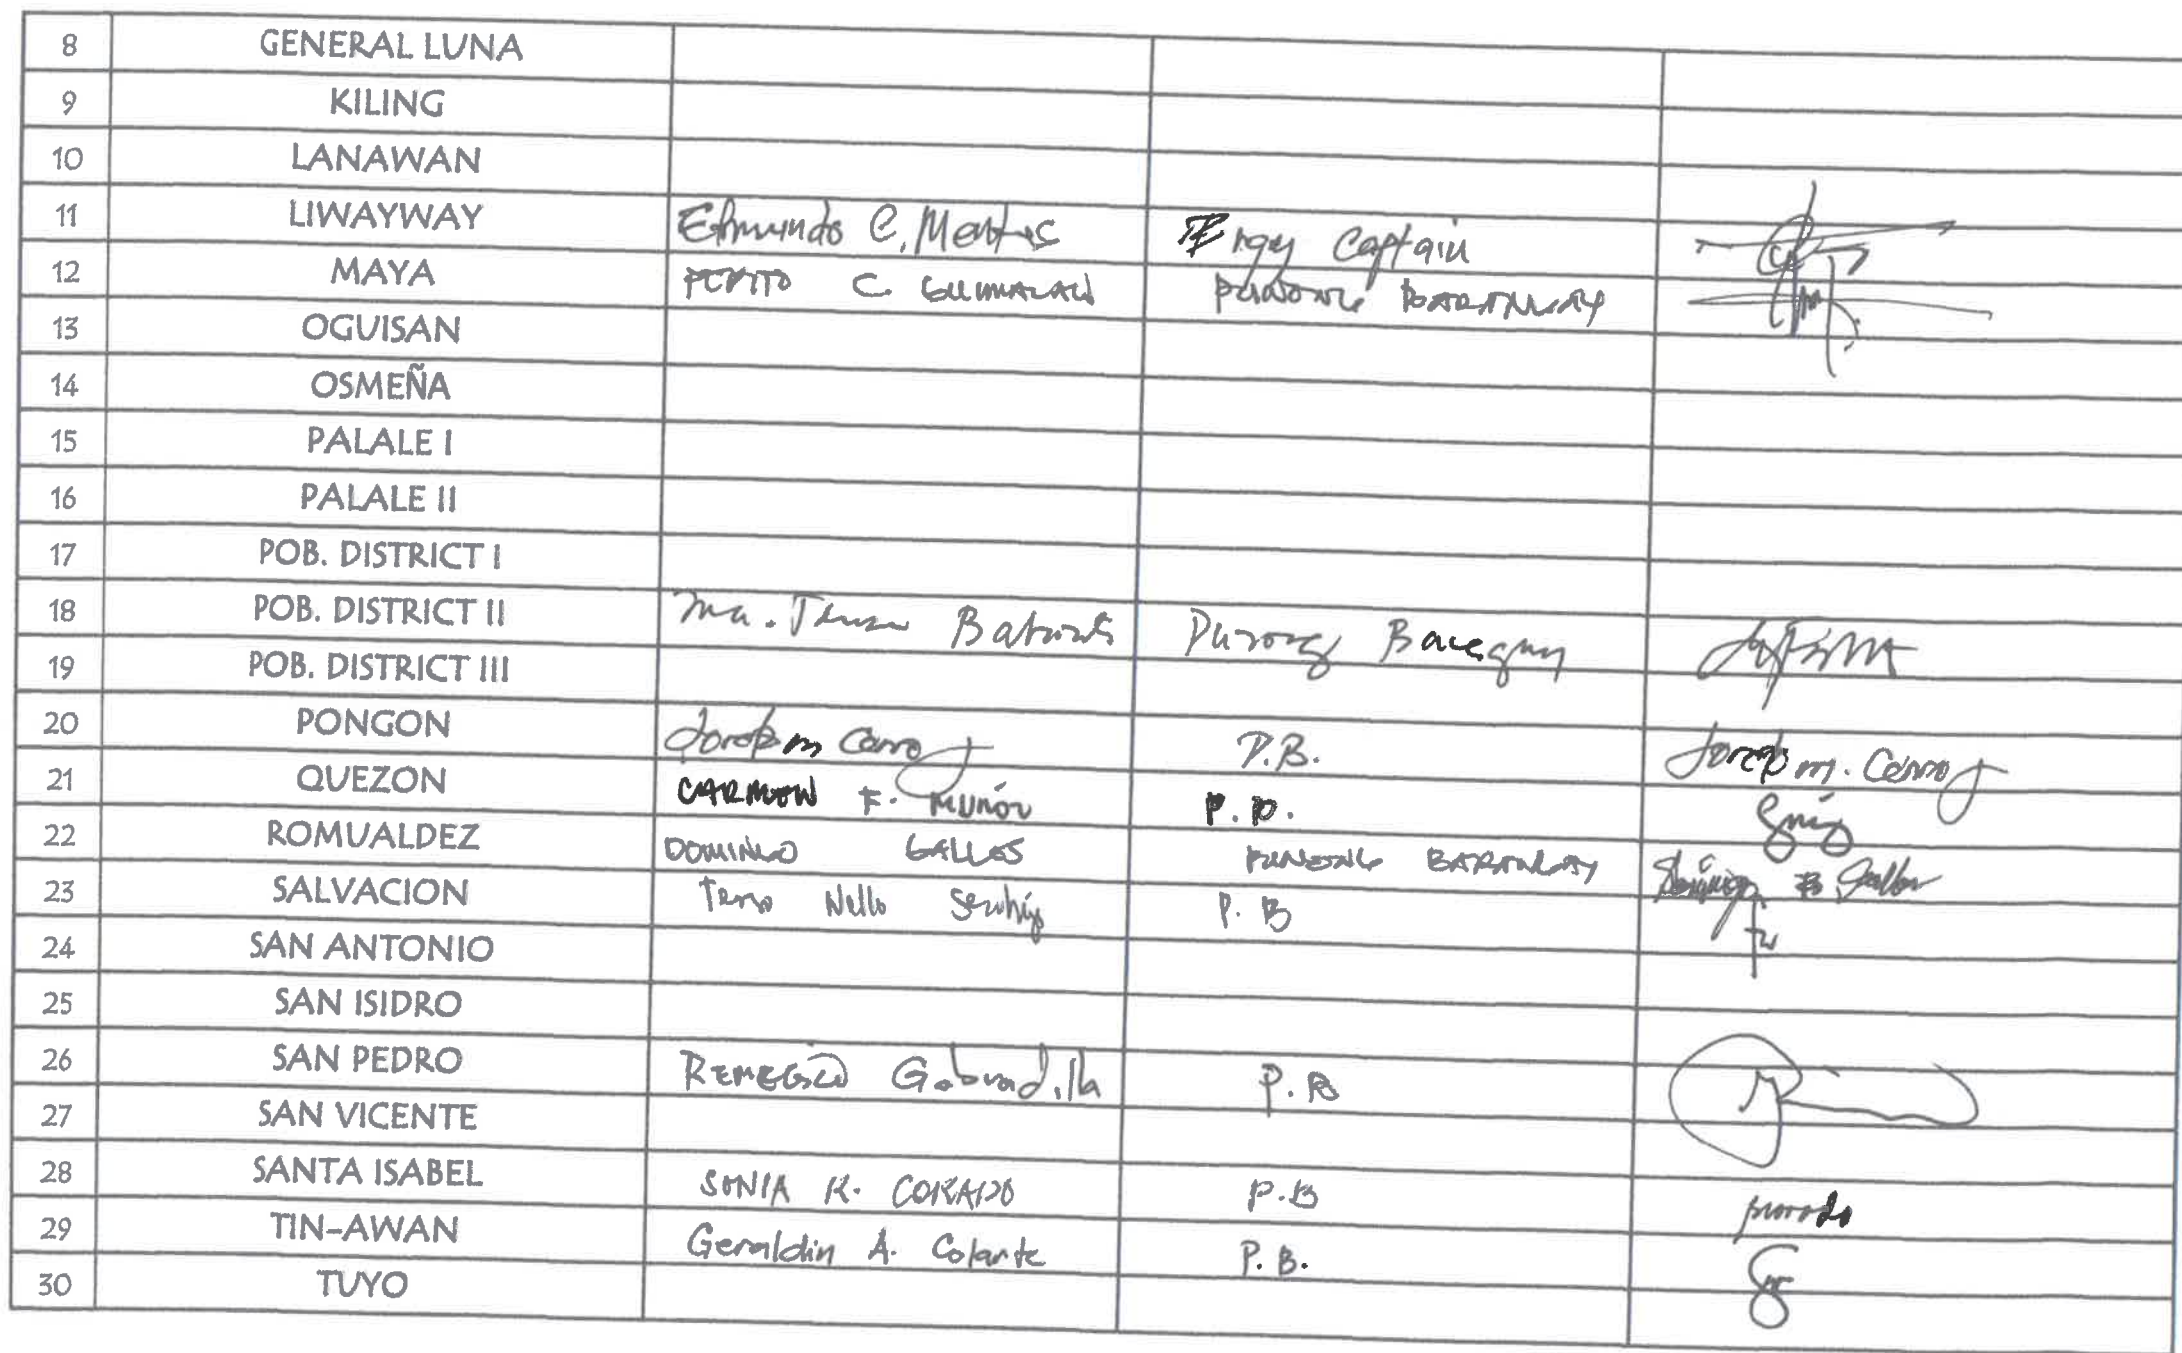 8 GENERAL LUNA
9 KILING
10 LANAWAN
11 LIWAYWAY Edmundo C. Brgy Captain
12 MAYA PEPITO C. PUNONG BARANGAY
13 OGUISAN
14 OSMEÑA
15 PALALE I
16 PALALE II
17 POB. DISTRICT I
18 POB. DISTRICT II Ma. Punong Barangay
19 POB. DISTRICT III
20 PONGON P.B.
21 QUEZON CARMEN F. MUÑOZ P.B.
22 ROMUALDEZ DOMINGO GALLOS PUNONG BARANGAY
23 SALVACION P.B
24 SAN ANTONIO
25 SAN ISIDRO
26 SAN PEDRO REMEGIO Gabradilla P.B
27 SAN VICENTE
28 SANTA ISABEL SONIA R. CORADO P.B
29 TIN-AWAN Geraldin A. Colante P.B.
30 TUYO